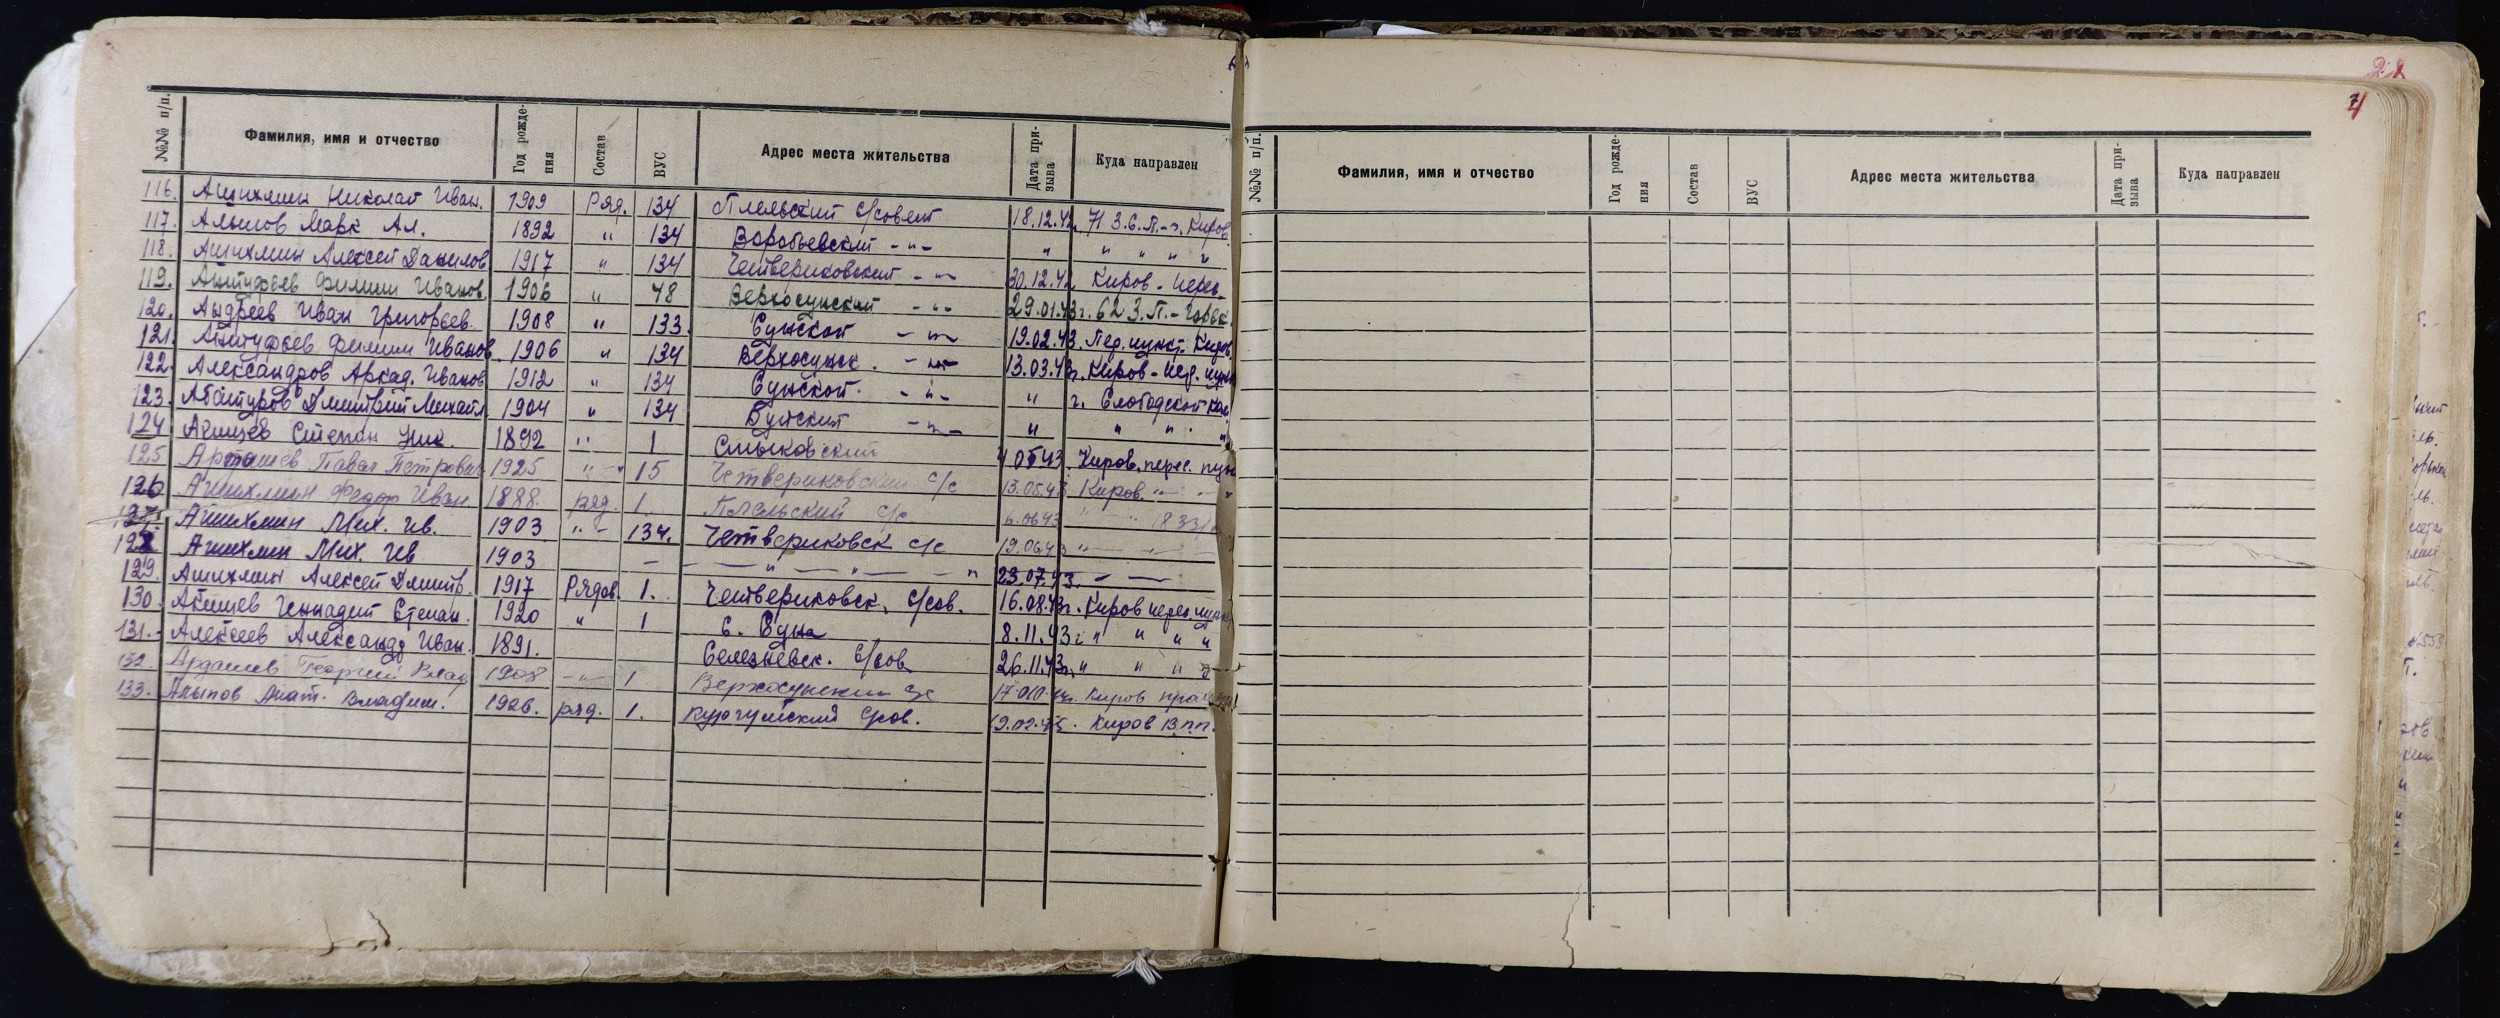 №№ п/п. Фамилия, имя и отчество Год рожде- ния Состав ВУС Адрес места жительства Дата при- зыва Куда направлен
116. Ашихмин Николай Иван. 1909 Ряд. 134 Плельский с/совет 18.12.42г. 71 З.С.П.-г. Киров.
117. Алыпов Марк Ал. 1892 " 134 Воробьевский -"- " " " " "
118. Ашихмин Алексей Данилов 1917 " 134 Четвериковский -"- 30.12.42 Киров - перес.
119. Антуфьев Филипп Иванов. 1906 " 48 Верхосунский -"- 29.01.43г. 62 З.П.-Горьк.
120. Андреев Иван Григорьев. 1908 " 133. Сунской -"- 19.02.43. Пер. пункт. Киров.
121. Антуфьев Филипп Иванов 1906 " 134 Верхосунск. -"- 13.03.43г. Киров - пер. пунк
122. Александров Аркад. Иванов 1912 " 134 Сунской. -"- " г. Слободской
123. Абатуров Дмитрий Михайл 1904 " 134 Буйский -"- " " " "
124 Агишев Степан Ник. 1892 " 1 Смыковский 4 05 43 Киров. перес. пунк
125 Арташев Павел Петрович 1925 " 15 Четвериковский с/с 13.05.43 Киров. -"- "
126 Ашихмин Федор Иван 1888. ряд. 1. Плельский с/с. 6.06 43 " "
127. Ашихмин Мих. Ив. 1903 " - 134. Четвериковск с/с 19.06.43 "
128 Ашихмин Мих. Ив 1903 - - " - " - " 23.07.43. -
129. Ашихмин Алексей Дмитр. 1917 Рядов. 1. Четвериковск. с/сов. 16.08.43г. Киров перес. пункт
130. Агишев Геннадий Степан. 1920 " 1 с. Суна 8.11.43г " " " "
131. Алексеев Александр Иван. 1891. Селезневск. с/сов 26.11.43г. " " "
132. Ардашев Георгий Влад 1908 -"- 1 Верхосунский с/с Киров
133. Алыпов Анат. Владим. 1926. ряд. 1. Курчумский с/сов. Киров В.п.п.
4
№№ п/п. Фамилия, имя и отчество Год рожде- ния Состав ВУС Адрес места жительства Дата при- зыва Куда направлен